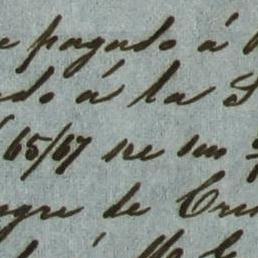 e pagado á
do á la S
65/67 ne un
gre de Cru